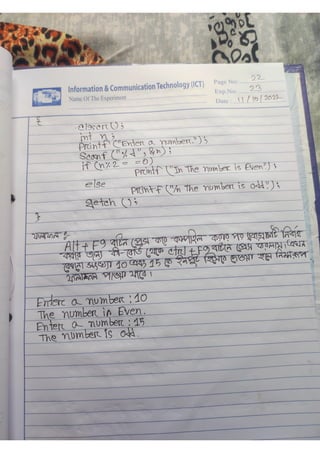 Information & Communication Technology (ICT)
Name Of The Experiment
Page No: 22
Exp.No: 23
Date: 11/10/2022
{
clrscr();
int n;
Printf ("Enter a number:");
Scanf ("%d", &n);
if (n%2 = =0)
Printf ("\n The number is Even");
else
Printf ("\n The number is odd");
getch ();
}
ফলাফল :
Alt + F9 বাটন প্রেস করে কম্পাইল করার পর প্রোগ্রামটি নির্বাহ
করার জন্য কী-বোর্ড থেকে ctrl + F9 বাটনে প্রেস করলাম। এখন
সংখ্যা 10 এবং 15 কে ইনপুট হিসেবে দেওয়া হলে নিম্নরূপ
ফলাফল পাওয়া যাবে।
Enter a number : 10
The number is Even.
Enter a number : 15
The number is odd.